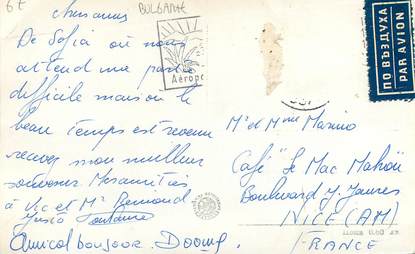 6€
BULGARIE
Chers amis
De Sofia où nous
attend une partie
difficile maison le
beau temps est revenu
recevez mon meilleur
souvenir Mes amitiés
à Vic et Mr Remond
Justo Fontaine
Amical bonjour
Aéropo
ПО ВЪЗДУХА
PAR AVION
Mr et Mme Marino
Café "Le Mac Mahon
Boulevard J. Jaures
NICE (AM)
FRANCE